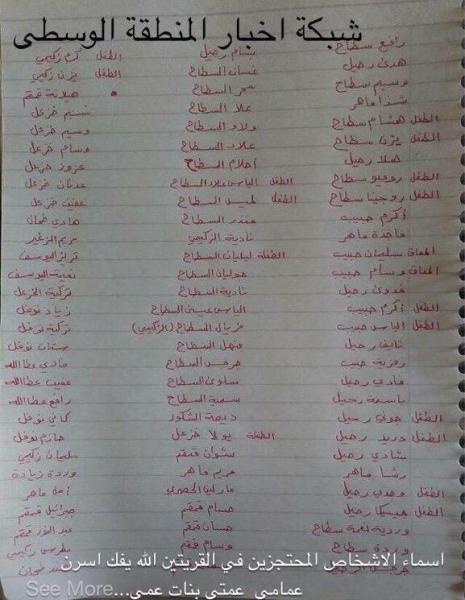 شبكة اخبار المنطقة الوسطى
رافع سطاح
هدى رحيل
وسيم سطاح
شذا ماهر
الطفل هشام سطاح
الطفل يزن سطاح
هلا رحيل
الطفل روميو سطاح
الطفل روجينا سطاح
أكرم حبيب
ماجدة ماهر
المعاق سليمان حبيب
المعاق وسام حبيب
فدوى رحيل
الطفل أكرم حبيب
الطفل الياس حبيب
نايف رحيل
رمزية حبيب
فادي رحيل
باسمة رحيل
الطفل جوني رحيل
الطفل دريد رحيل
شادي رحيل
رشا ماهر
الطفل وهدي رحيل
الطفل جيسيكا رحيل
وردية نعمة سطاح
وردة سطاح
بسام رحيل
غسان السطاح
سحر السطاح
علا السطاح
ولاء السطاح
علاء السطاح
أحلام السطاح
الطفل الياس علاء السطاح
الطفل لميس السطاح
منذر السطاح
نادية الزكيمي
الطفلة ليليان السطاح
جوليان السطاح
نادية السطاح
الياس عيسى السطاح
فريال السطاح (الزكيمي)
منهل السطاح
جرجس السطاح
سلوى السطاح
سمية السطاح
ديمة الشكور
الطفلة يولا خزعل
نشوان قمقم
مريم ماهر
مارلين الحصري
حسام قمقم
حسان قمقم
وسام قمقم
الطفل كرم زكيمي
الطفل يزن زكيمي
هيلانة قمقم
نسيم خزعل
وسيم خزعل
وسام خزعل
عزوز خزعل
عدنان خزعل
عفيف خزعل
هادي طحان
مريم الزغير
تريز اليوسف
نعمية اليوسف
تركية الخزعل
زياد نوفل
تركية نوفل
بستان نوفل
فادي عطاالله
عفيف عطاالله
رافع عطاالله
كاني نوفل
حازم نوفل
سليمان زكيمي
وردة زيادة
أمل ماهر
جبرائيل قمقم
عبد النور قمقم
بطرس زكيمي
اسماء الاشخاص المحتجزين في القريتين الله يفك اسرن
عمامي عمتي بنات عمي...See More